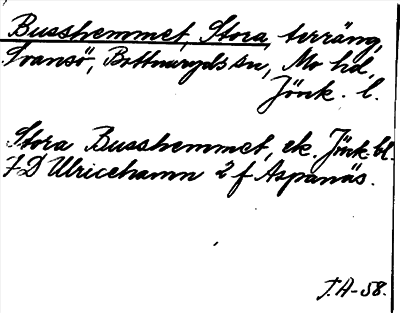 Busshemmet, Stora, terräng,
Svansö, Bottnaryds sn, Mo hd,
Jönk. l.
Stora Busshemmet, ek. Jönk. bl.
7D Ulricehamn 2 f Aspanäs.
T.A-58.